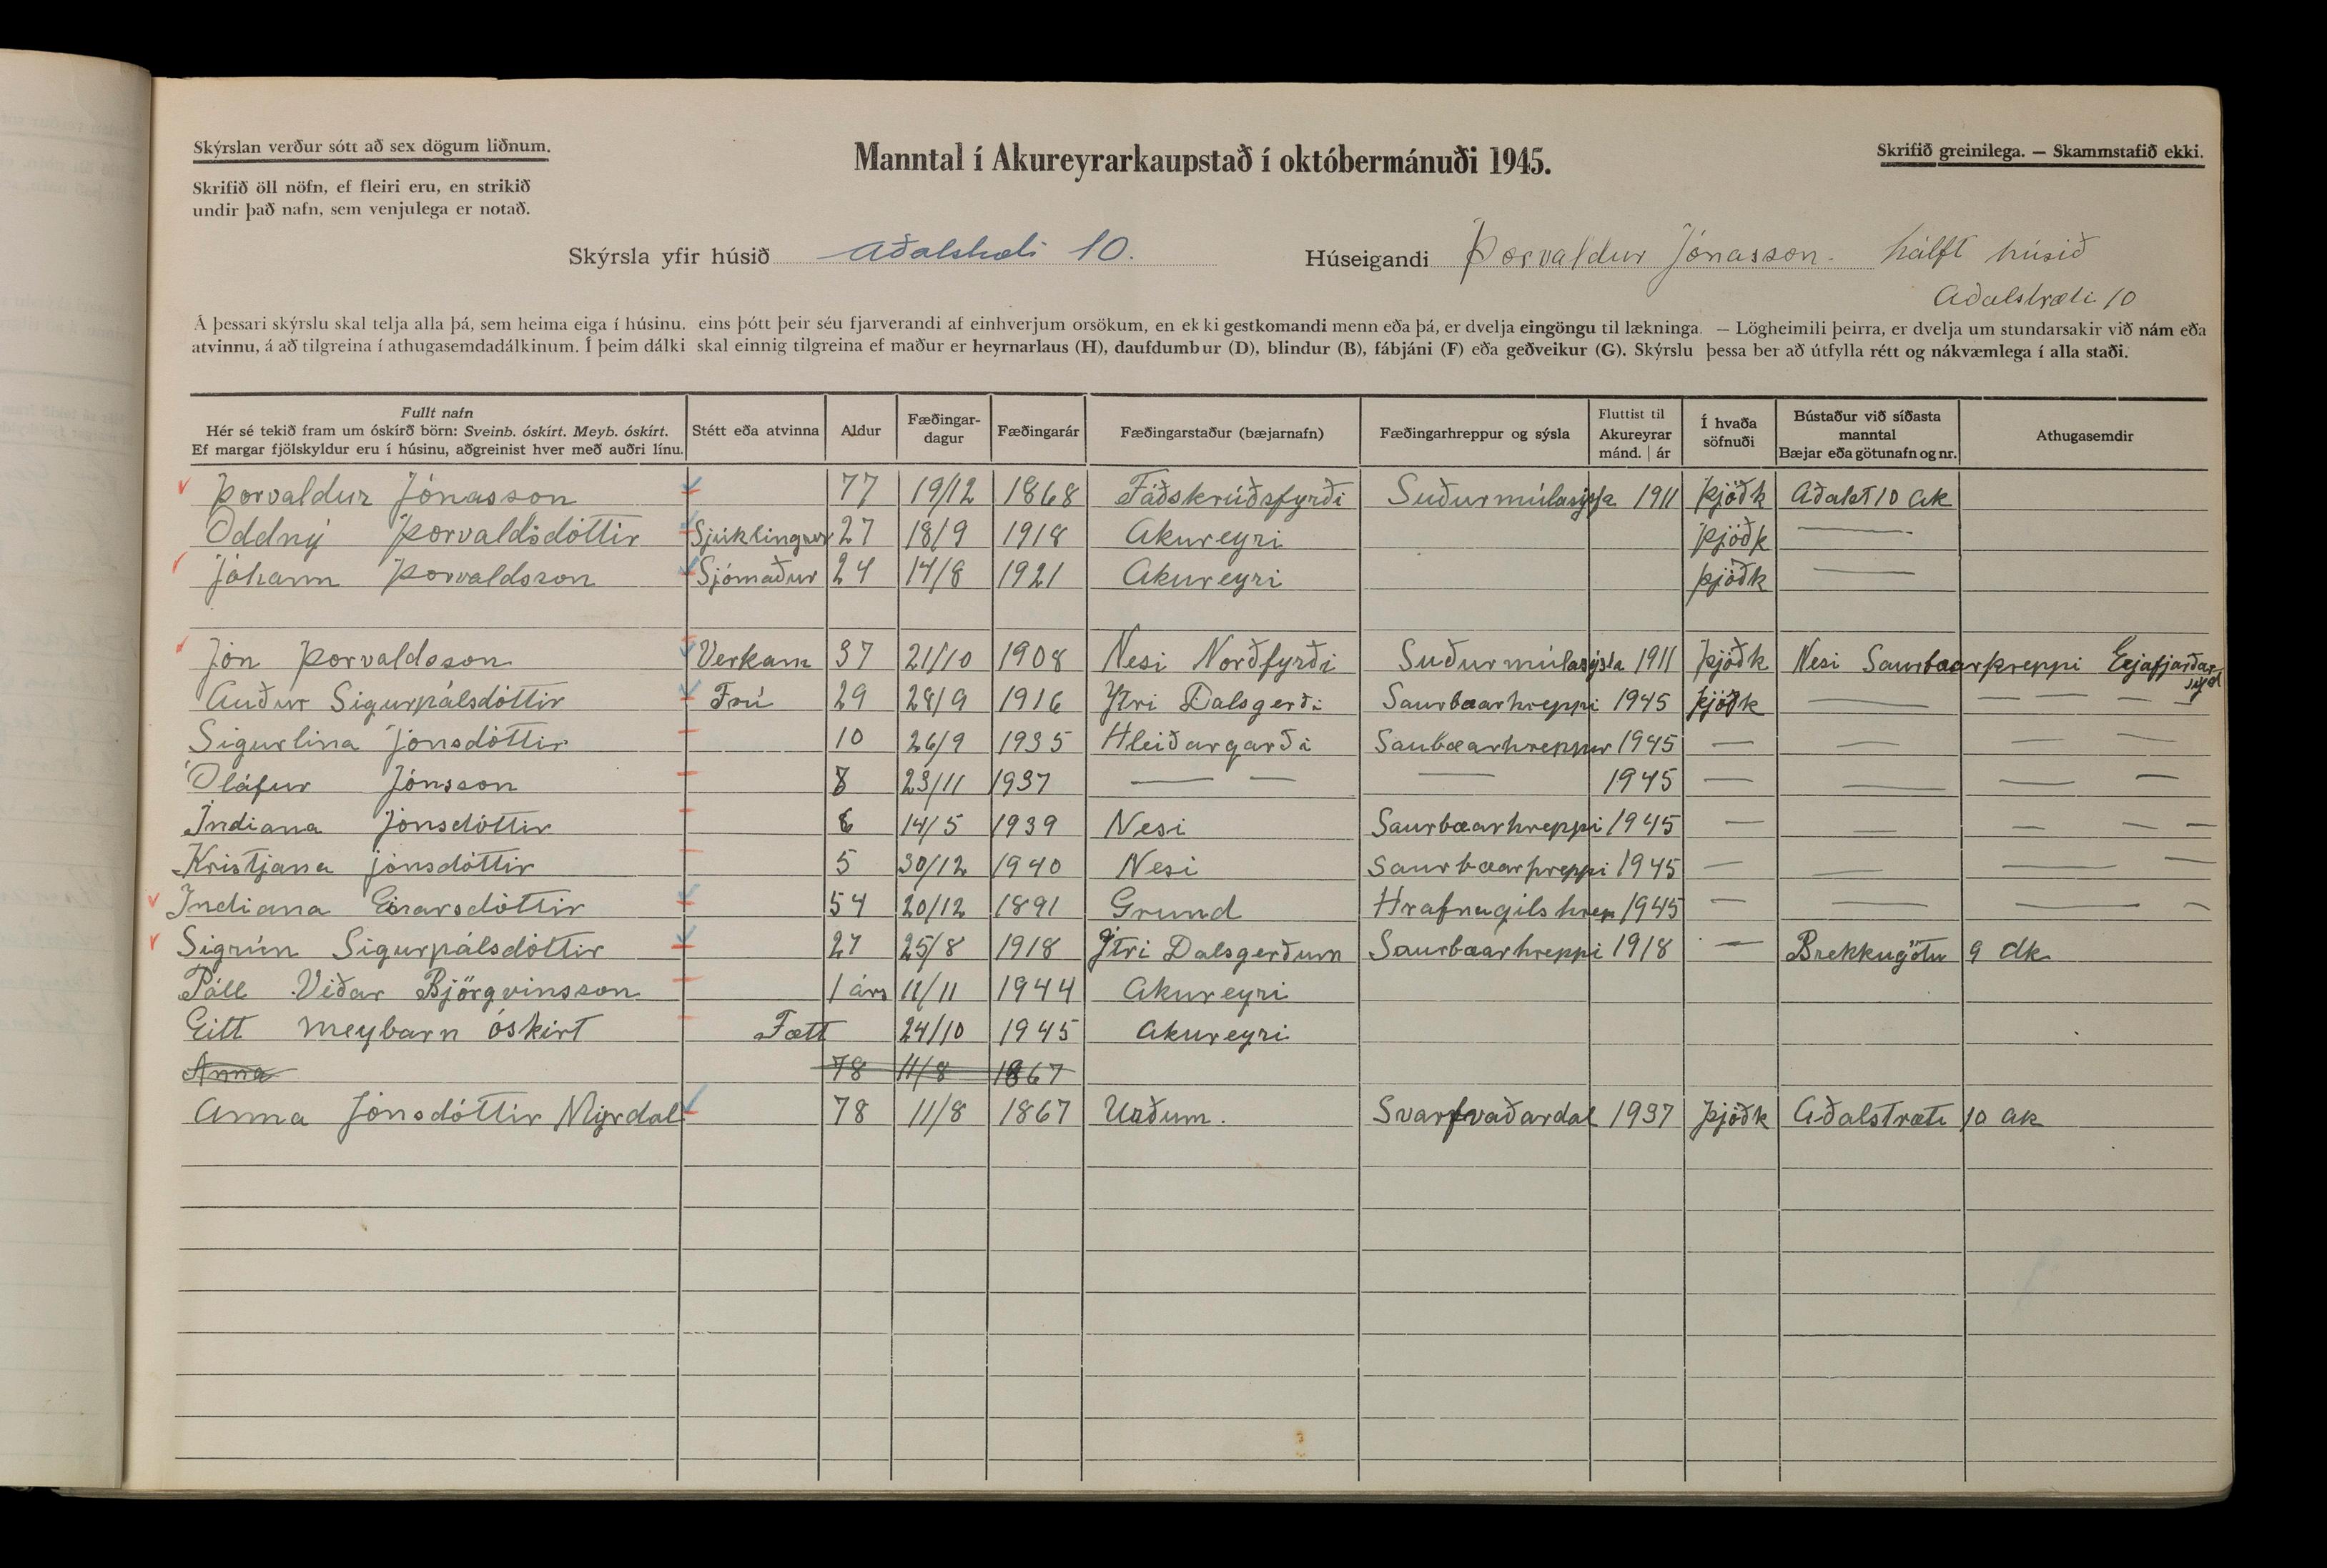 Skýrslan verður sótt að sex dögum liðnum.
Skrifið öll nöfn, ef fleiri eru, en strikið
undir það nafn, sem venjulega er notað.
Manntal í Akureyrarkaupstað í októbermánuði 1945.
Skrifið greinilega. — Skammstafið ekki.
Skýrsla yfir húsið Aðalstræti 10.
Húseigandi Þorvaldur Jónasson. hálft húsið
Aðalstræti 10
Á þessari skýrslu skal telja alla þá, sem heima eiga í húsinu, eins þótt þeir séu fjarverandi af einhverjum orsökum, en ekki gestkomandi menn eða þá, er dvelja eingöngu til lækninga. — Lögheimili þeirra, er dvelja um stundarsakir við nám eða
atvinnu, á að tilgreina í athugasemdadálkinum. Í þeim dálki skal einnig tilgreina ef maður er heyrnarlaus (H), daufdumbur (D), blindur (B), fábjáni (F) eða geðveikur (G). Skýrslu þessa ber að útfylla rétt og nákvæmlega í alla staði.
Fullt nafn
Hér sé tekið fram um óskírð börn: Sveinb. óskírt. Meyb. óskírt.
Ef margar fjölskyldur eru í húsinu, aðgreinist hver með auðri línu.
Stétt eða atvinna
Aldur
Fæðingar-
dagur
Fæðingarár
Fæðingarstaður (bæjarnafn)
Fæðingarhreppur og sýsla
Fluttist til
Akureyrar
mánd. | ár
Í hvaða
söfnuði
Bústaður við síðasta
manntal
Bæjar eða götunafn og nr.
Athugasemdir
Þorvaldur Jónasson 77 19/12 1868 Fáðskrúðsfyrði Suðurmúlasýsla 1911 Þjóðk Aðalst 10 Ak
Oddný Þorvaldsdóttir Sjúklingur 27 18/9 1918 Akureyri Þjóðk —
Jóhann Þorvaldsson Sjómaður 24 14/8 1921 Akureyri Þjóðk —
Jón Þorvaldsson Verkam 37 21/10 1908 Nesi Norðfyrði Suðurmúlasýsla 1911 Þjóðk Nesi Saurbæarhreppi Eyjafjarðar
sýsl
Auður Sigurpálsdóttir Frú 29 28/9 1916 Ytri Dalsgerði Saurbæarhreppi 1945 Þjóðk — — — —
Sigurlína Jónsdóttir 10 26/9 1935 Hleiðargarði Saubæarhreppur 1945 — — — —
Óláfur Jónsson 8 23/11 1937 — — — 1945 — — — —
Indiana Jónsdóttir 6 14/5 1939 Nesi Saurbæarhreppi 1945 — — — — —
Kristjana jónsdóttir 5 30/12 1940 Nesi Saurbæarhreppi 1945 — — — —
Indiana Einarsdóttir 54 20/12 1891 Grund Hrafnagilshrep 1945 — — — —
Sigrún Sigurpálsdóttir 27 25/8 1918 Ytri Dalsgerðum Saurbæarhreppi 1918 — Brekkugötu 9 Ak
Páll Viðar Björgvinsson 1 árs 11/11 1944 Akureyri
Eitt meybarn óskirt Fætt 24/10 1945 Akureyri
Anna 78 11/8 1867
Anna Jónsdóttir Mýrdal 78 11/8 1867 Urðum. Svarfvaðardal 1937 Þjóðk Aðalstræti 10 ak